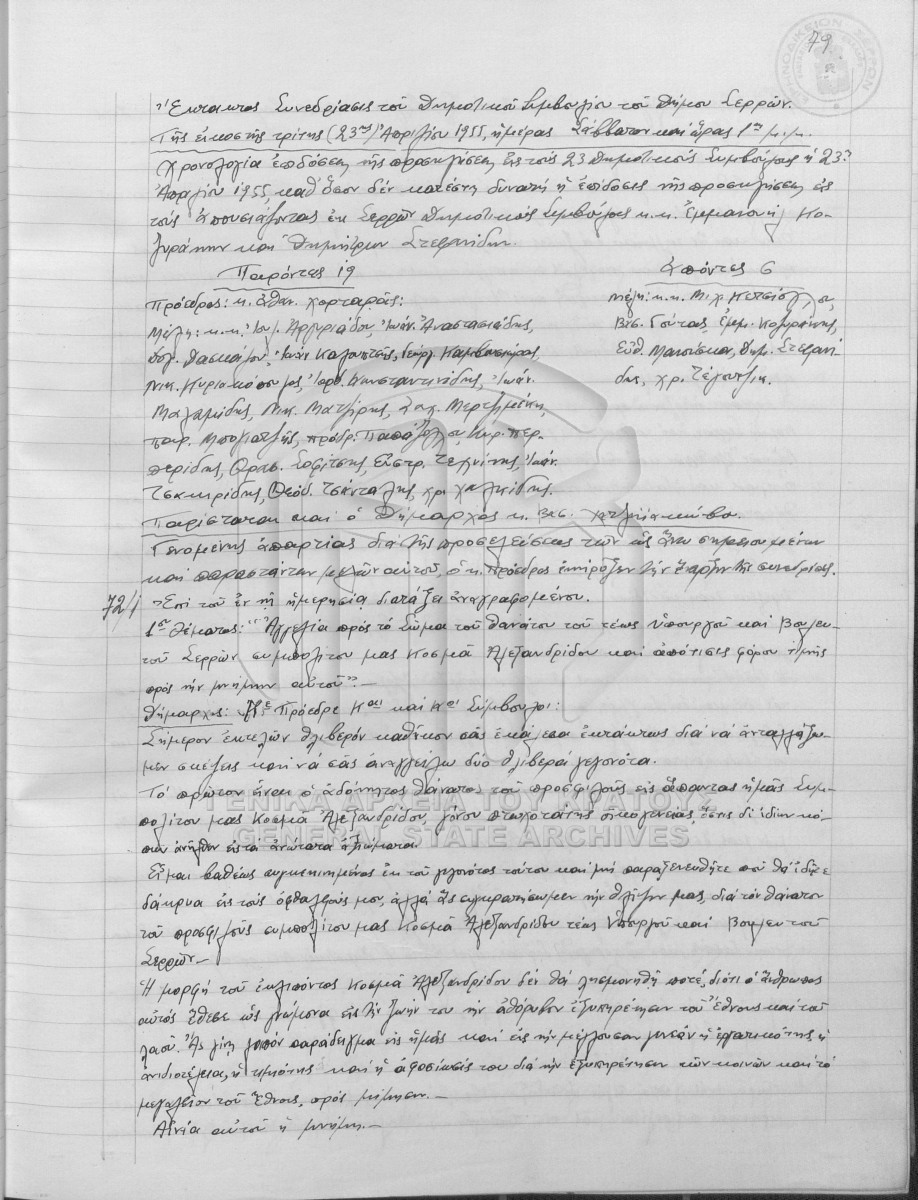 79
Ἔκτακτος Συνεδρίασις τοῦ Δημοτικοῦ Συμβουλίου τοῦ Δήμου Σερρῶν.
Τῆς εἰκοστῆς τρίτης (23ης) Ἀπριλίου 1955, ἡμέρας Σάββατον καὶ ὥρας 1ης μ.μ.
Χρονολογία ἐπιδόσεως τῆς προσκλήσεως εἰς τοὺς 23 Δημοτικοὺς Συμβούλους ἡ 23η
Ἀπριλίου 1955, καθ' ὅσον δὲν κατέστη δυνατὴ ἡ ἐπίδοσις τῆς προσκλήσεως εἰς
τοὺς ἀπουσιάζοντας ἐκ Σερρῶν Δημοτικοὺς Συμβούλους κ.κ. Ἐμμανουὴλ Κο-
ζυράκην καὶ Δημήτριον Στεφανίδην.
Παρόντες 19
Ἀπόντες 6
Πρόεδρος: κ. Ἀθαν. Χορταρᾶς:
Μέλη: κ.κ. Ἀργυριάδου, Ἰωάν. Ἀναστασιάδης,
Πολ. Δασκάλου, Ἰωάν. Καλαϊτζῆς, Γεώργ.
Νικ. Κυριακόπουλος, Κωνσταντινίδης, Ἰωάν.
Μαλαμίδης, Νικ. Ματζίρης, Ζαχ.
Μπογιατζῆς, πρόδρ. Παπάζογλου, Κυρ. Περ-
περίδης, Ὀρεσ. Σοφίτσης, Εὐστρ. Τεχνίτης, Ἰωάν.
Τσακιρίδης, Θεόδ. Τσανταλῆς, χρ. χαλκίδης.
Μέλη: κ.κ. Μιχ.
Βασ. Γούτας, Ἐμμ. Κοζυράκης,
Εὐθ. Δημ. Στεφανί-
δης, χρ.
Παρίσταται καὶ ὁ Δήμαρχος κ. Βασ.
Γενομένης ἀπαρτίας διὰ τῆς προσελεύσεως τῶν ὡς ἄνω σημειουμένων
καὶ παραστάντων μελῶν αὐτοῦ, ὁ κ. Πρόεδρος ἐκήρυξεν τὴν ἔναρξιν τῆς συνεδρίας.
72/1
Ἐπὶ τοῦ ἐν τῇ ἡμερησίᾳ διατάξει ἀναγραφομένου.
1ου Θέματος: "Ἀγγελία πρὸς τὸ Σῶμα τοῦ θανάτου τοῦ τέως Ὑπουργοῦ καὶ Βουλευ-
τοῦ Σερρῶν συμπολίτου μας Κοσμᾶ Ἀλεξανδρίδου καὶ ἀπότισις φόρου τιμῆς
πρὸς τὴν μνήμην αὐτοῦ".-
Δήμαρχος: Κε Πρόεδρε Κοι καὶ Κοι Σύμβουλοι:
Σήμερον ἐκτελῶν θλιβερὸν καθῆκον σᾶς ἐκάλεσα ἐκτάκτως διὰ νὰ ἀνταλλάξω-
μεν σκέψεις καὶ νὰ σᾶς ἀναγγείλω δύο θλιβερὰ γεγονότα.
Τὸ πρῶτον εἶναι ὁ ἀδόκητος θάνατος τοῦ προσφιλοῦς εἰς ἅπαντας ἡμᾶς συμ-
πολίτου μας Κοσμᾶ Ἀλεξανδρίδου, γόνου πτωχοτάτης οἰκογενείας, ὅστις δι' ἰδίων κό-
πων ἀνῆλθεν εἰς τὰ ἀνώτατα ἀξιώματα.
Εἶμαι βαθέως συγκεκινημένος ἐκ τοῦ γεγονότος τούτου καὶ μὴ παραξενευθῆτε ποὺ θὰ ἰδῆτε
δάκρυα εἰς τοὺς ὀφθαλμούς μου, ἀλλὰ ἂς συγκρατήσωμεν τὴν θλίψιν μας, διὰ τὸν θάνατον
τοῦ προσφιλοῦς συμπολίτου μας Κοσμᾶ Ἀλεξανδρίδου τέως Ὑπουργοῦ καὶ Βουλευτοῦ
Σερρῶν.-
Ἡ μορφὴ τοῦ ἐκλιπόντος Κοσμᾶ Ἀλεξανδρίδου δὲν θὰ λησμονηθῇ ποτέ, διότι ὁ ἄνθρωπος
αὐτὸς ἔθεσε ὡς γνώμονα εἰς τὴν ζωήν του τὴν ἀθόρυβον ἐξυπηρέτησιν τοῦ Ἔθνους καὶ τοῦ
λαοῦ. Ἂς γίνῃ λοιπὸν παράδειγμα εἰς ἡμᾶς καὶ εἰς τὴν μέλλουσαν γενεὰν ἡ ἐργατικότης, ἡ
ἀνιδιοτέλεια, ἡ τιμιότης καὶ ἡ ἀφοσίωσίς του διὰ τὴν ἐξυπηρέτησιν τῶν κοινῶν καὶ τὸ
μεγαλεῖον τοῦ Ἔθνους, πρὸς μίμησιν.-
Αἰωνία αὐτοῦ ἡ μνήμη.-
ΓΕΝΙΚΑ ΑΡΧΕΙΑ ΤΟΥ ΚΡΑΤΟΥΣ
GENERAL STATE ARCHIVES